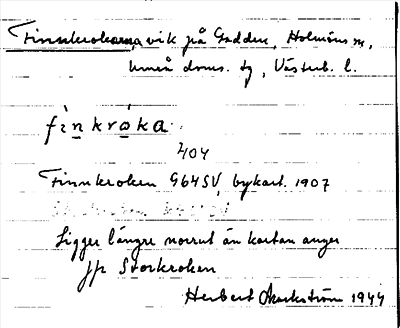 Finnkrokarna, vik på Gadden, Holmöns sn,
Umeå doms. tg, Västerb. l.
fìnkròka
404
Finnkroken G64SV, bykart. 1907
Ligger längre norrut än kartan anger
jfr Storkroken
Herbert Markström 1944